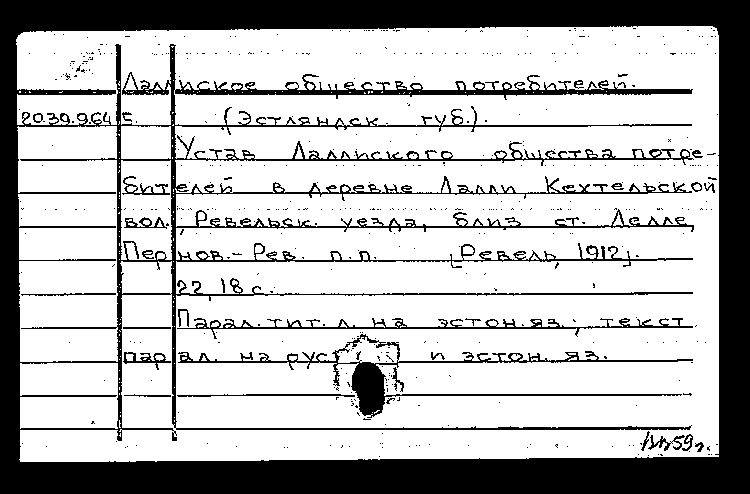 Лаллиское общество потребителей.
20.39.9.645. (Эстляндск. губ.).
Устав Лаллиского общества потре-
бителей в деревне Лалли, Кехтельской
вол., Ревельск. уезда, близ ст. Лелле,
Пернов.-Рев. п.п. [Ревель, 1912].
22, 18 с.
Парал. тит. л. на эстон. яз.; текст
парал. на рус и эстон. яз.
59 г.